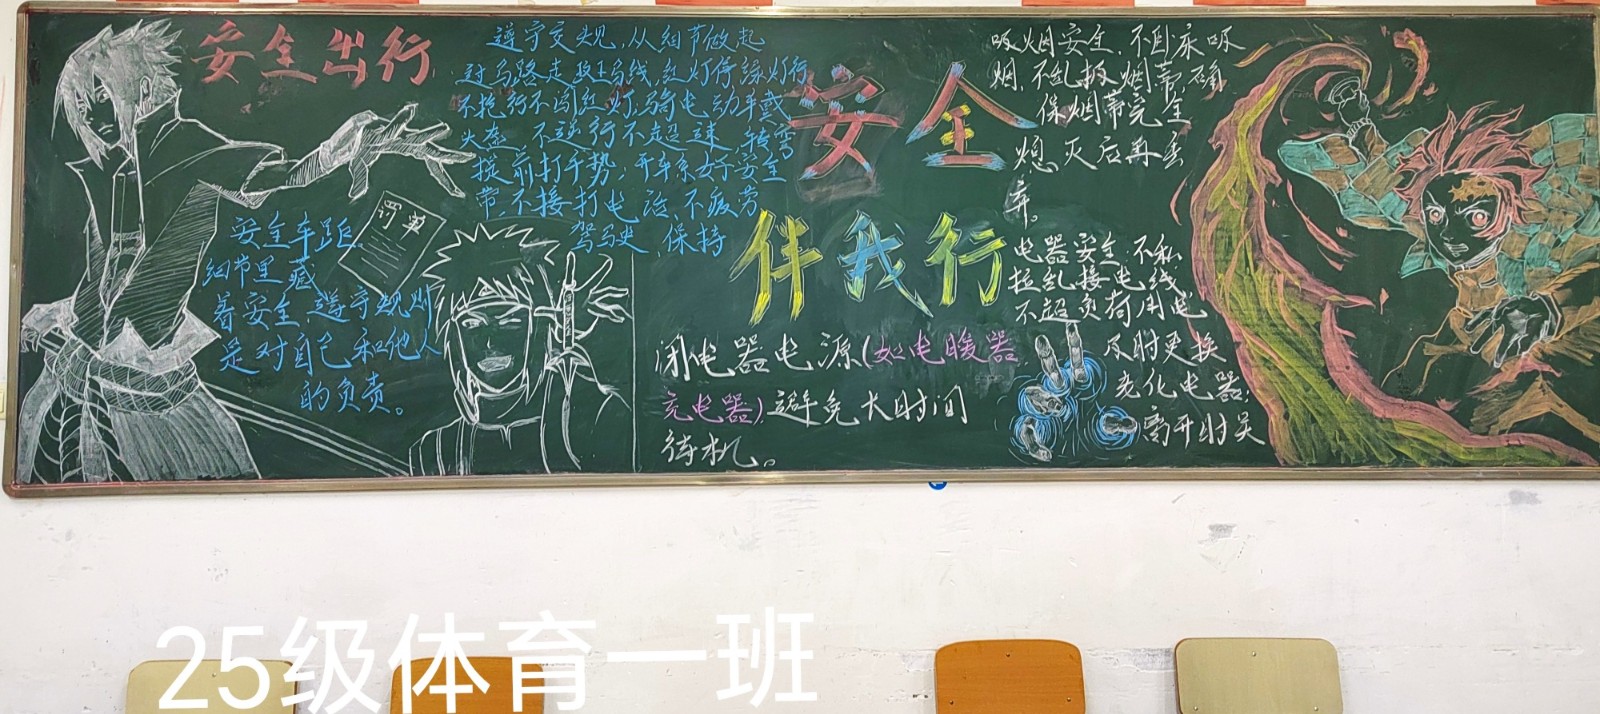 安全出行
遵守交规,从细节做起
过马路走斑马线,红灯停绿灯行
不抢行不闯红灯,骑电动车戴
头盔,不逆行不超速,转弯
提前打手势;开车系好安全
带,不接打电话,不疲劳
驾驶,保持
安全车距
细节里藏
着安全,遵守规则
是对自己和他人
的负责。
罚单
安全
伴我行
吸烟安全,不卧床吸
烟,不乱扔烟蒂,确
保烟蒂完全
熄灭后再丢
弃。
电器安全:不私
拉乱接电线
不超负荷用电
及时更换
老化电器;
离开时关
闭电器电源(如电暖器
充电器),避免长时间
待机。
25级体育一班